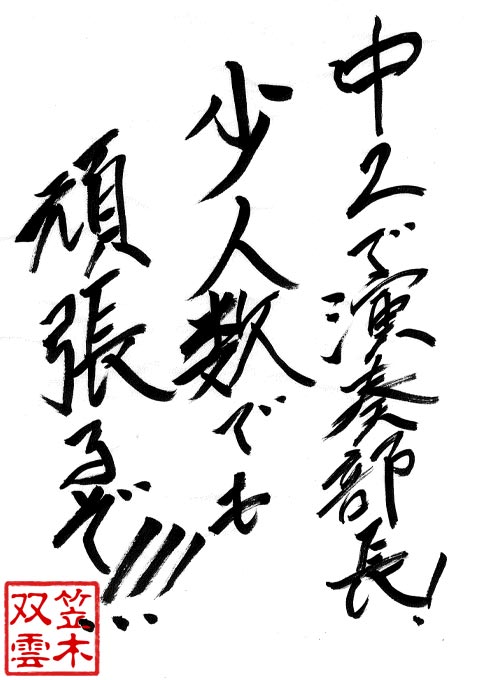 中2で演奏部長!
少人数でも
頑張るぞ!!!
笠木
双雲